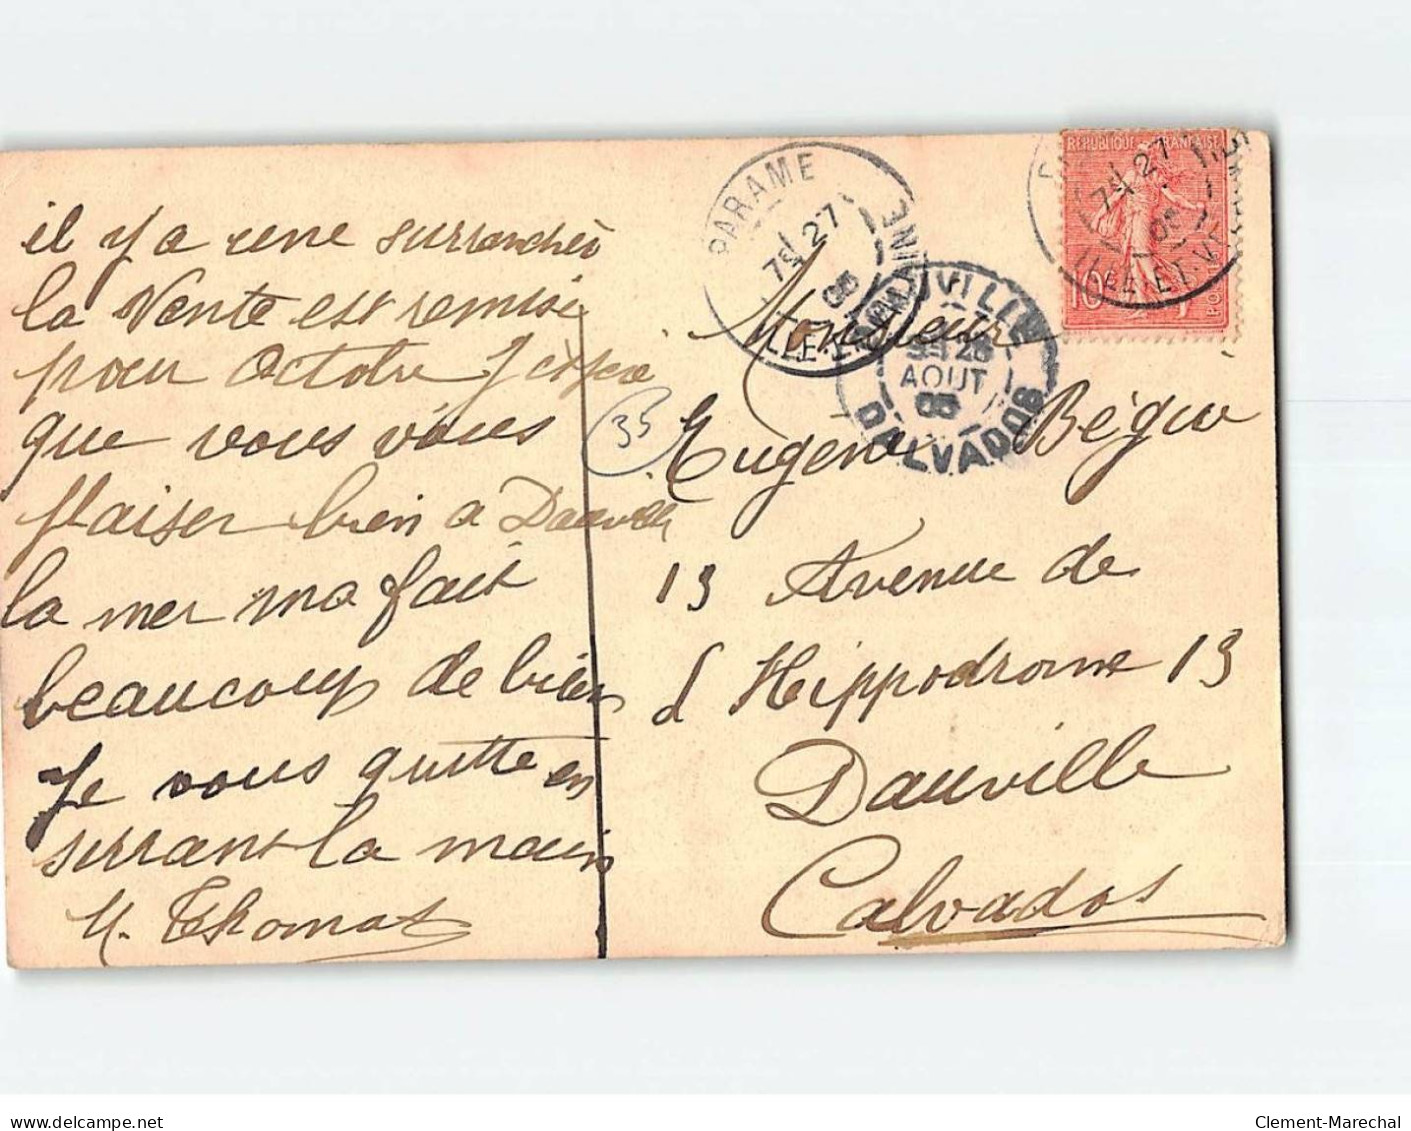 il y a une surranchèr
la Vente est remise
pour Octobre J espere
que vous vous
plaiser bien a Dauville
la mer ma fait
beaucoup de bien
Je vous quitte en
serrant la main
M. Thomas
35
PARAME
7E 27
05
ILLE-ET-VILAINE
DAUVILLE
28
AOUT
05
CALVADOS
REPUBLIQUE FRANCAISE
10
7E 27
05
ILLE-ET-VILAINE
Monsieur
Eugene Béguin
13 Avenue de
l Hippodrome 13
Dauville
Calvados
delcampe.net
Clement-Marechal